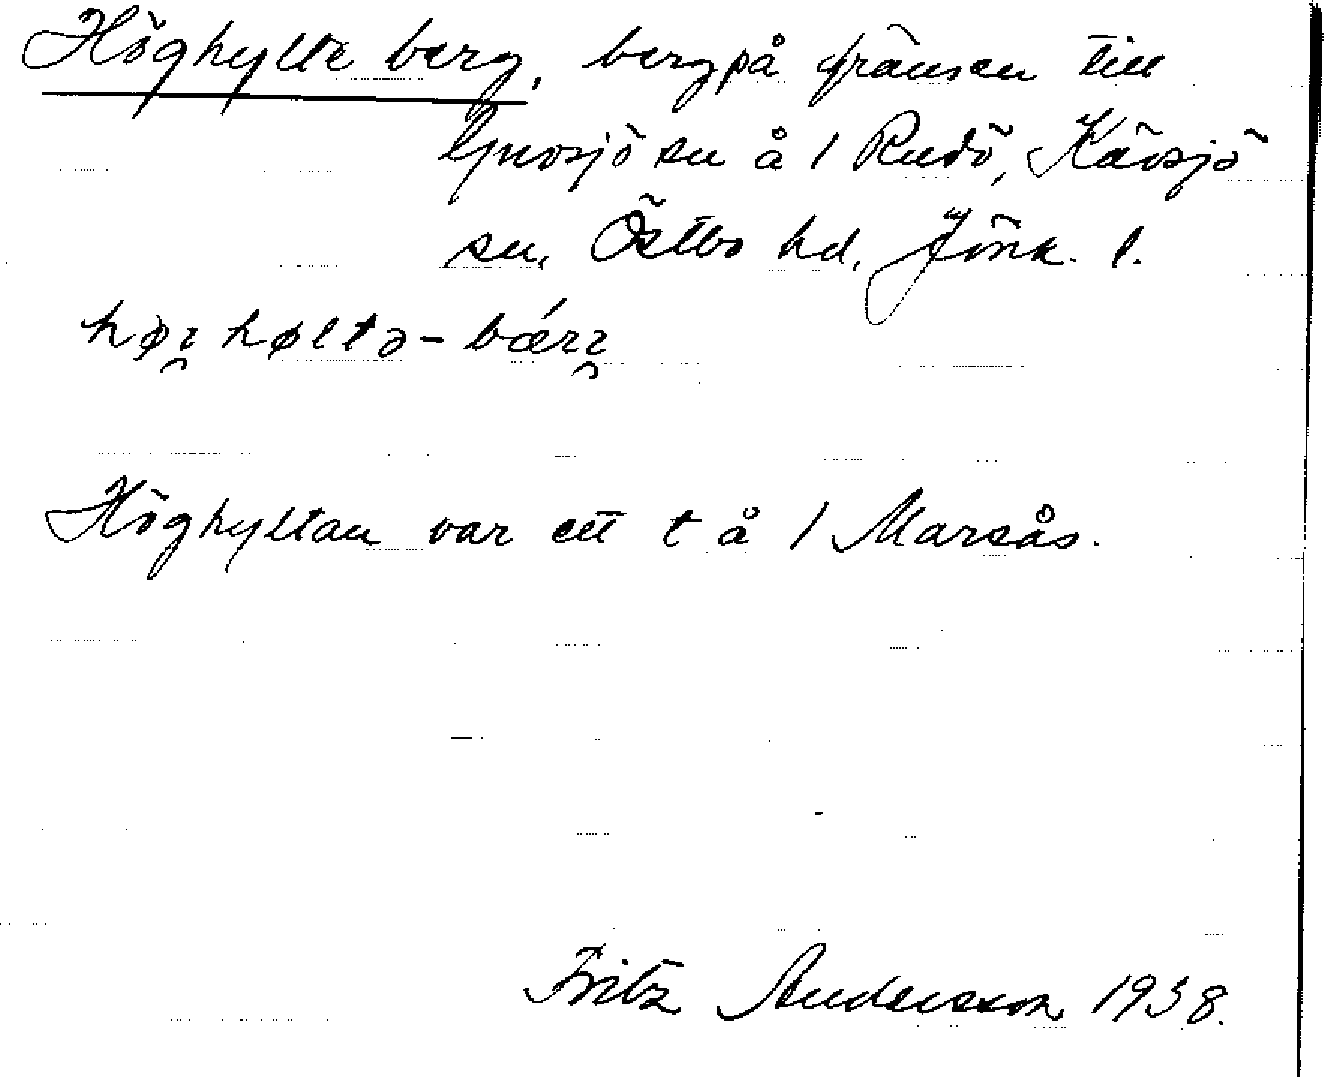 Höghylte berg, berg på gränsen till
Gnosjö sn å 1 Rudö, Kävsjö
sn, Östbo hd, Jönk. l.
høı høltə-bǽrı
Höghyltan var ett t å 1 Marsås.
Fritz Andersson 1938.